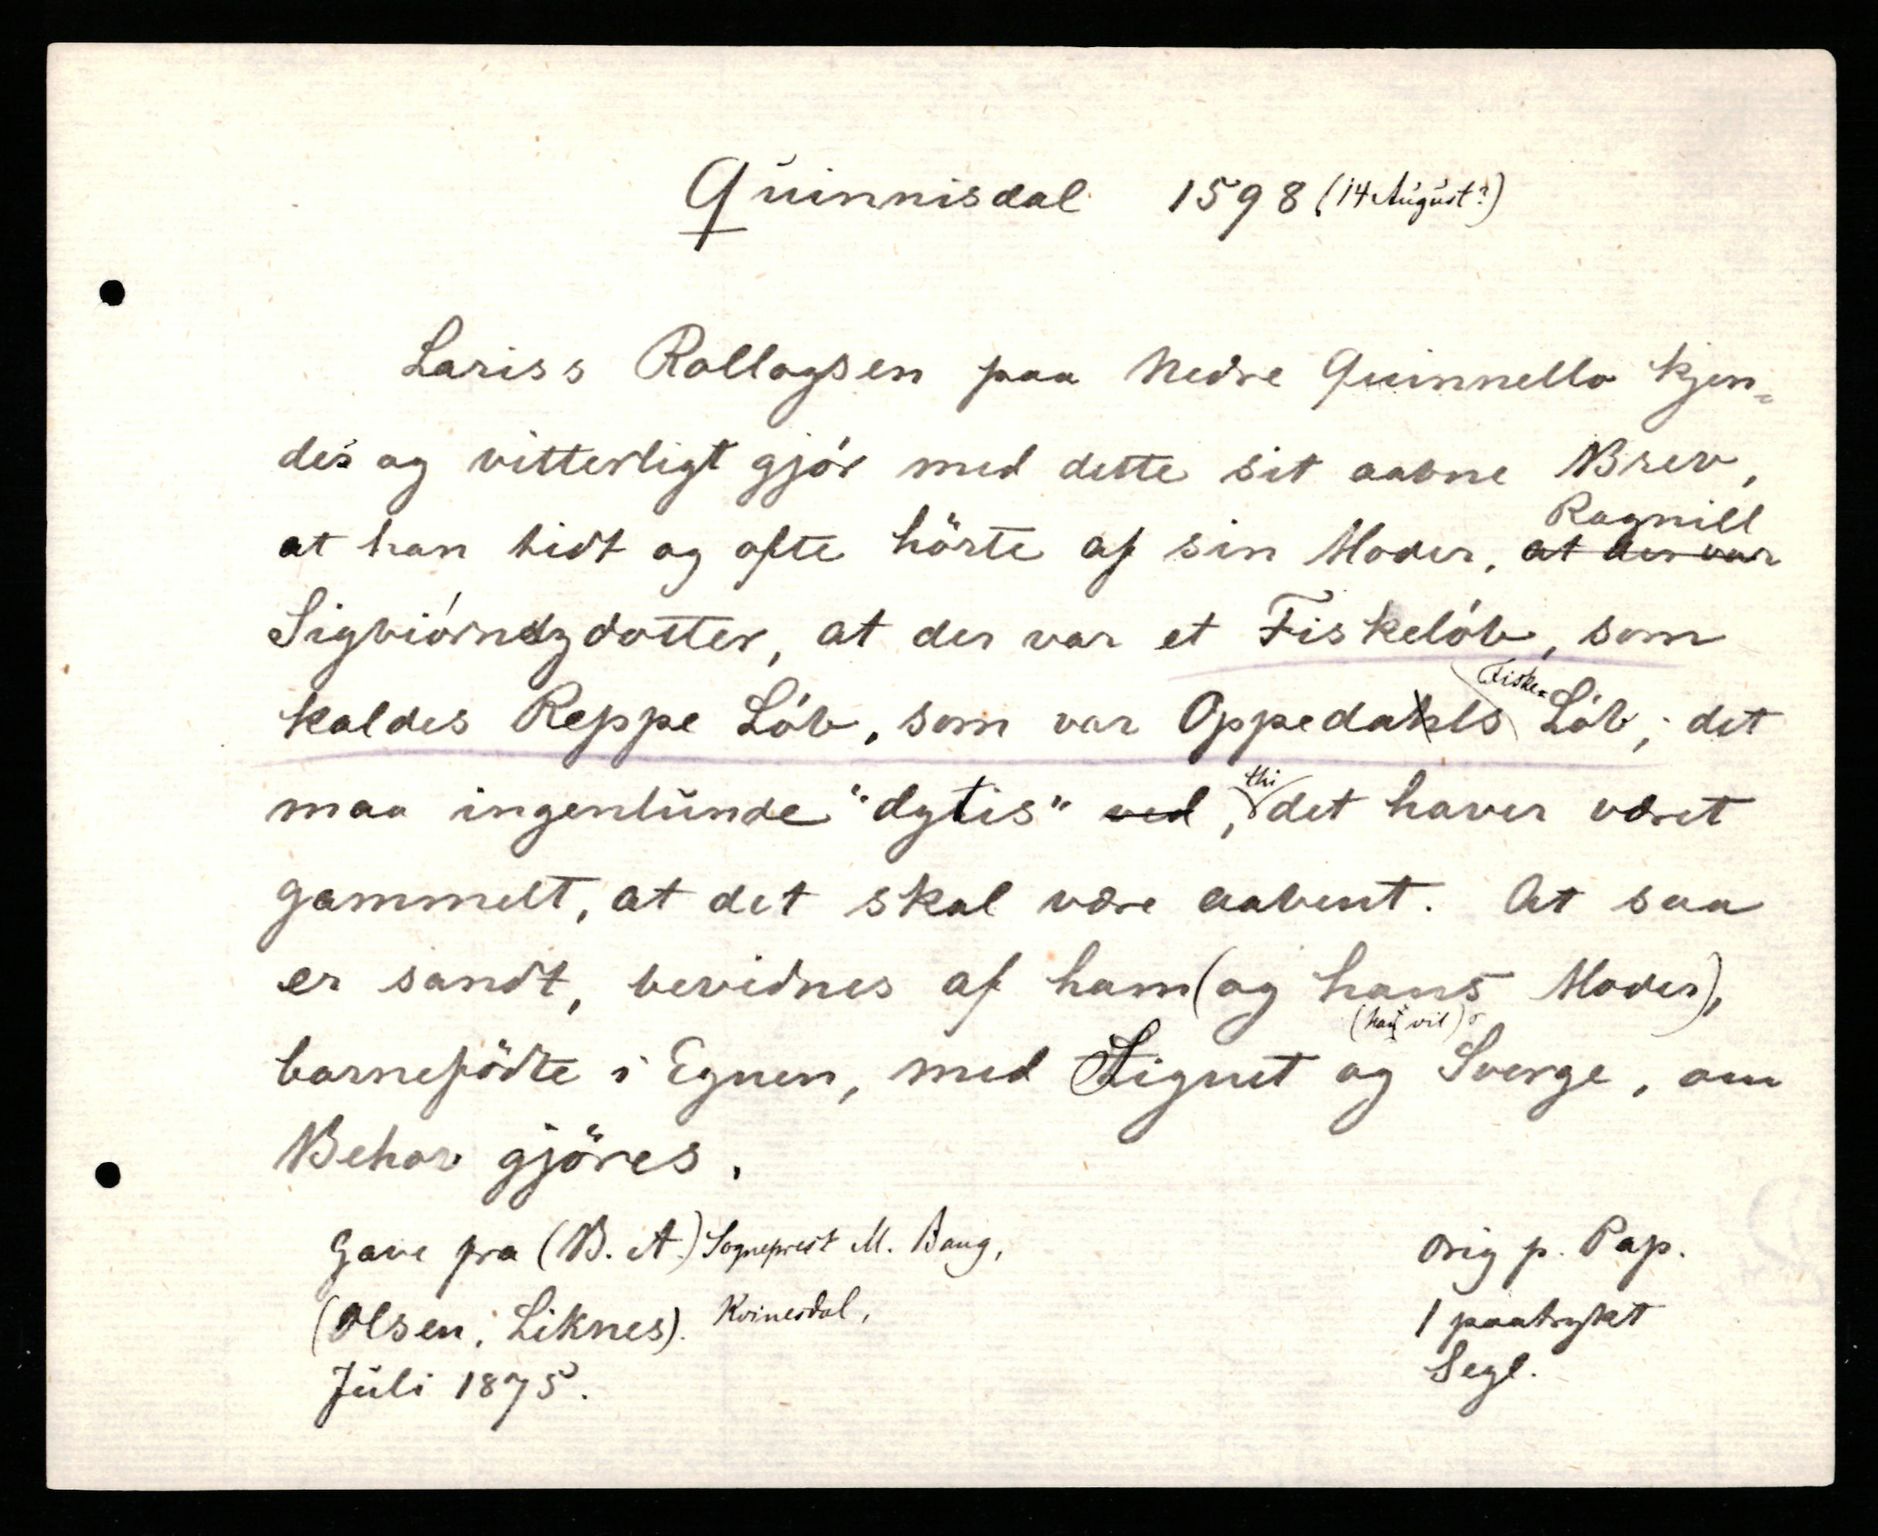 Quinnisdal 1598 (14 August?)
Lariss Rollogsen paa Nedre Quinnello kjen=
des og vitterligt gjór med dette sit aabne Brev,
Ragnill
at han tidt og ofte hörte af sin Moder, at der var
Sigbiórndzdotter, at der var et Fiskelób, som
Fiske=
kaldes Reppe Lób, som var Oppedahls Lób; det
thi
maa ingenlunde "dytis" ved, det haver været
gammelt, at det skal være aabent. At saa
er sandt, bevidnes af ham (og hans Moder),
(han vil)
barnefödte i Egnen, med Signet og Sverge, om
Behov gjöres.
Gave fra (B. A.) Sogneprest M. Bang,
(Olsen, Liknes). Kvinesdal,
Juli 1875.
Orig p. Pap.
1 paatrykt
Segl.